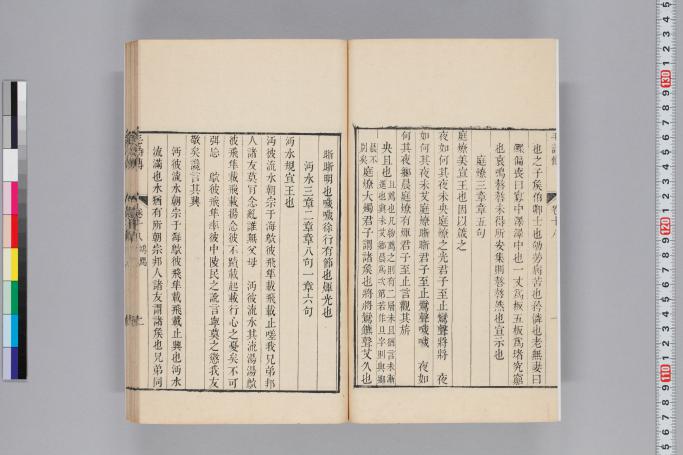 也之子矦伯卿士也劬勞病苦也矜憐也老無妻曰
鰥偏喪曰寡中澤澤中也一丈爲板五板爲堵究窮
也哀鳴嗸嗸未得所安集則嗸嗸然也宣示也
庭燎三章章五句
庭燎美宣王也因以箴之
夜如何其夜未央庭燎之光君子至止鸞聲將將 夜
如何其夜未艾庭燎晣晣君子至止鸞聲噦噦 夜如
何其夜鄉晨庭燎有煇君子至止言觀其旂
央且也
庭燎大燭君子謂諸矦也將將鸞鑣聲艾久也
晣晣明也噦噦徐行有節也煇光也
沔水三章二章章八句一章六句
沔水規宣王也
沔彼流水朝宗于海鴥彼飛隼載飛載止嗟我兄弟邦
人諸友莫肎念亂誰無父母 沔彼流水其流湯湯鴥
彼飛隼載飛載揚念彼不蹟載起載行心之憂矣不可
弭忘 鴥彼飛隼率彼中陵民之訛言寧莫之懲我友
敬矣讒言其興
沔彼流水朝宗于海鴥彼飛隼載飛載止興也沔水
流滿也水猶有所朝宗邦人諸友謂諸矦也兄弟同